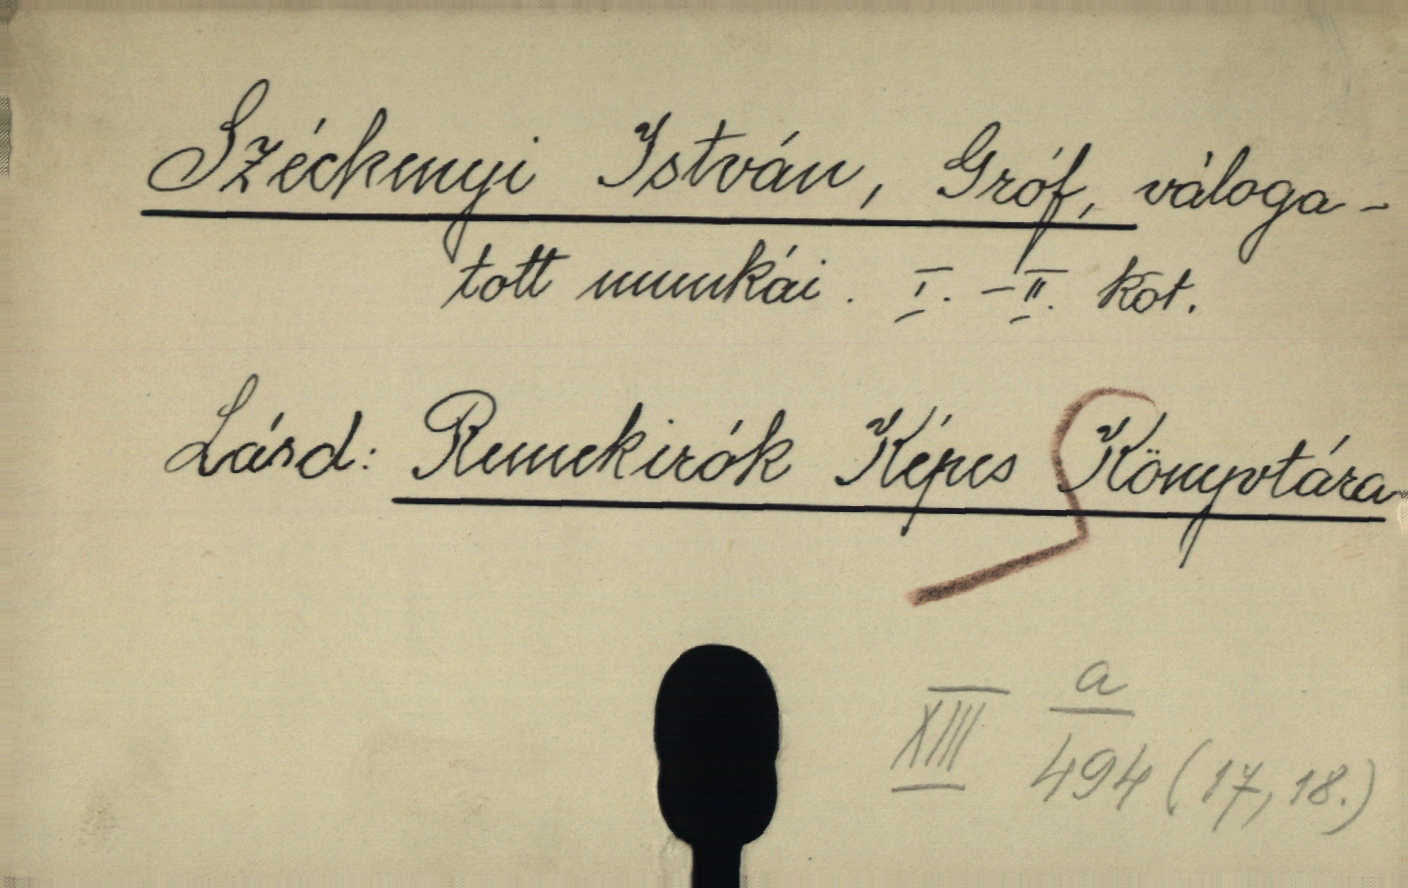 Széchenyi István, Gróf, váloga-
tott munkái. I. - II. Köt.
Lásd: Remekirók Képes Könyvtára
XIII a
494 (17, 18.)